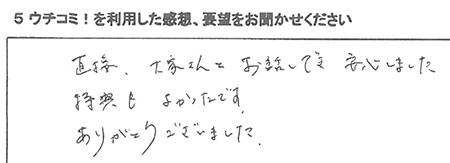 5 ウチコミ！を利用した感想、要望をお聞かせください
直接、大家さんと お話しでき 安心しました
特典も よかったです。
ありがとうございました。